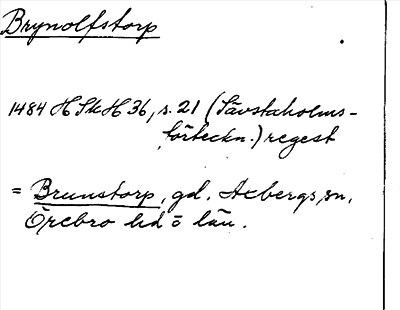 Brynolfstorp
1484 HSkH 36, s. 21 (Sävstaholms-
förteckn.) regest
= Brunstorp, gd. Axbergs sn,
Örebro hd o län.